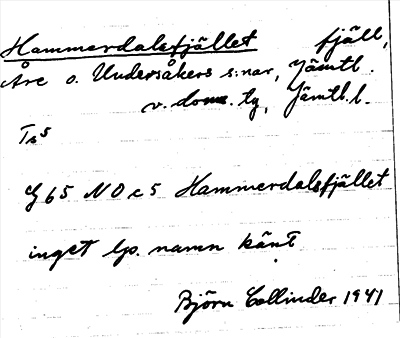 Hammerdalsfjället fjäll,
Åre o. Undersåkers s:nar, Jämtl.
v. doms. tg, Jämtl. l.
Ts5
G 65 NO c 5 Hammerdalsfjället
inget lp. namn känt
Björn Collinder 1941